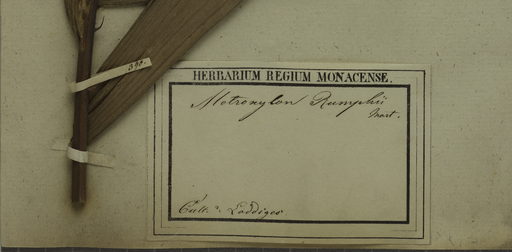 390.
HERBARIUM REGIUM MONACENSE.
Metroxylon Rumphii
Mart.
Cult. a. Loddiges